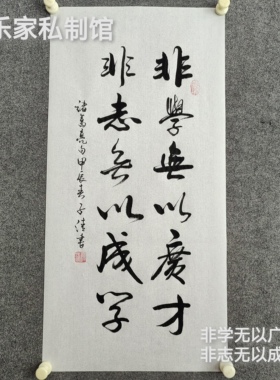 乐家私制馆
非學無以廣才
非志無以成学
諸葛亮句甲辰春子清書
非学无以广
非志无以成